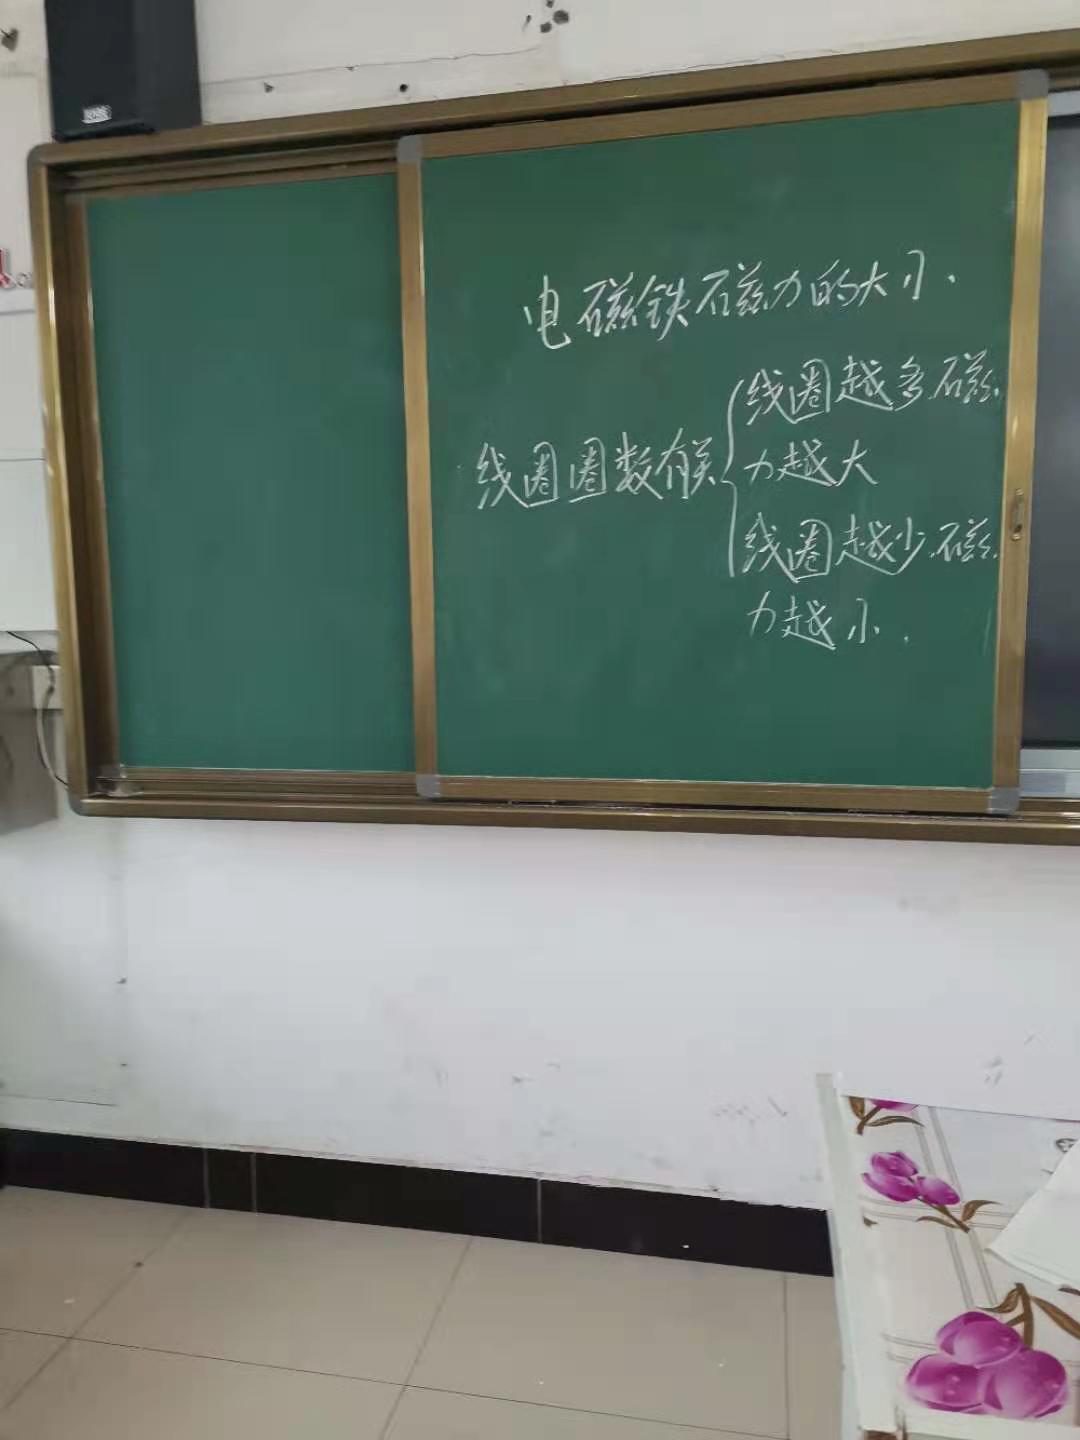 电磁铁磁力的大小.
线圈圈数有关
线圈越多磁
力越大
线圈越少磁
力越小.